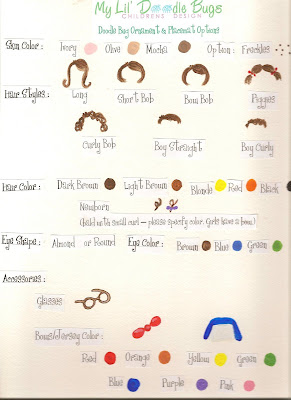 My Lil' Doodle Bugs
CHILDRENS DESIGN
Doodle Bug Ornament & Placemat Options
Skin Color: Ivory Olive Mocha Option: Freckles
Hair Styles: Long Short Bob Bow Bob Piggies
Curly Bob Boy Straight Boy Curly
Hair Color: Dark Brown Light Brown Blonde Red Black
Newborn
(bald with small curl - please specify color. Girls have a bow!)
Eye Shape: Almond or Round Eye Color: Brown Blue Green
Accessories:
Glasses
Bows/Jersey Color:
Red Orange Yellow Green
Blue Purple Pink